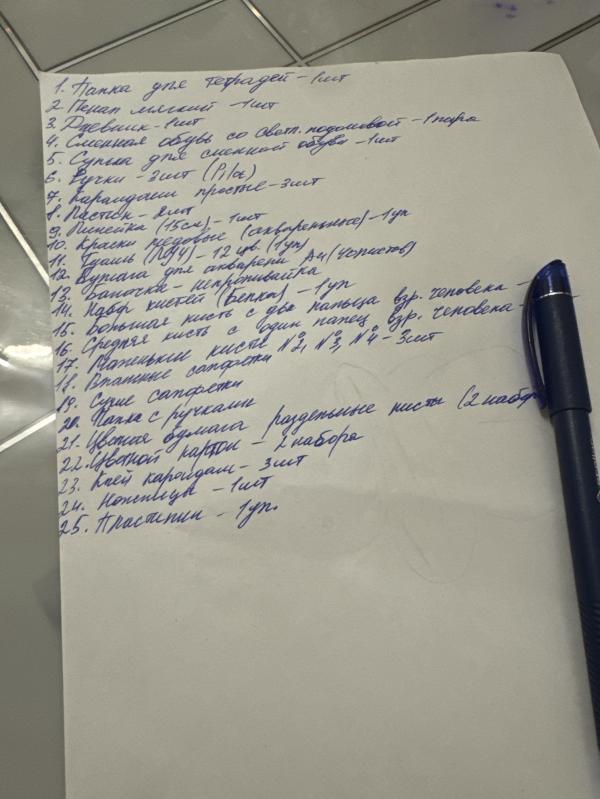 1. Папка для тетрадей - 1шт
2. Пенал мягкий - 1шт
3. Дневник - 1шт
4. Сменная обувь со светл. подошвой - 1пара
5. Сумка для сменной обуви - 1шт
6. Ручки - 3шт (Pilot)
7. Карандаши простые - 3шт
8. Ластик - 2шт
9. Линейка (15см) - 1шт
10. Краски медовые (акварельные) - 1уп
11. Гуашь (Луч) - 12 цв. (1уп)
12. Бумага для акварели А4 (40листов)
13. Баночка - непроливайка
14. Набор кистей (Белка) - 1уп
15. Большая кисть с два пальца взр. человека -
16. Средняя кисть с один палец взр. человека -
17. Маленькие кисти №2, №3, №4 - 3шт
18. Влажные салфетки
19. Сухие салфетки
20. Папка с ручками
21. Цветная бумага раздельные листы (2 набор
22. Цветной картон - 2 набора
23. Клей карандаш - 3шт
24. Ножницы - 1шт
25. Пластилин - 1уп.